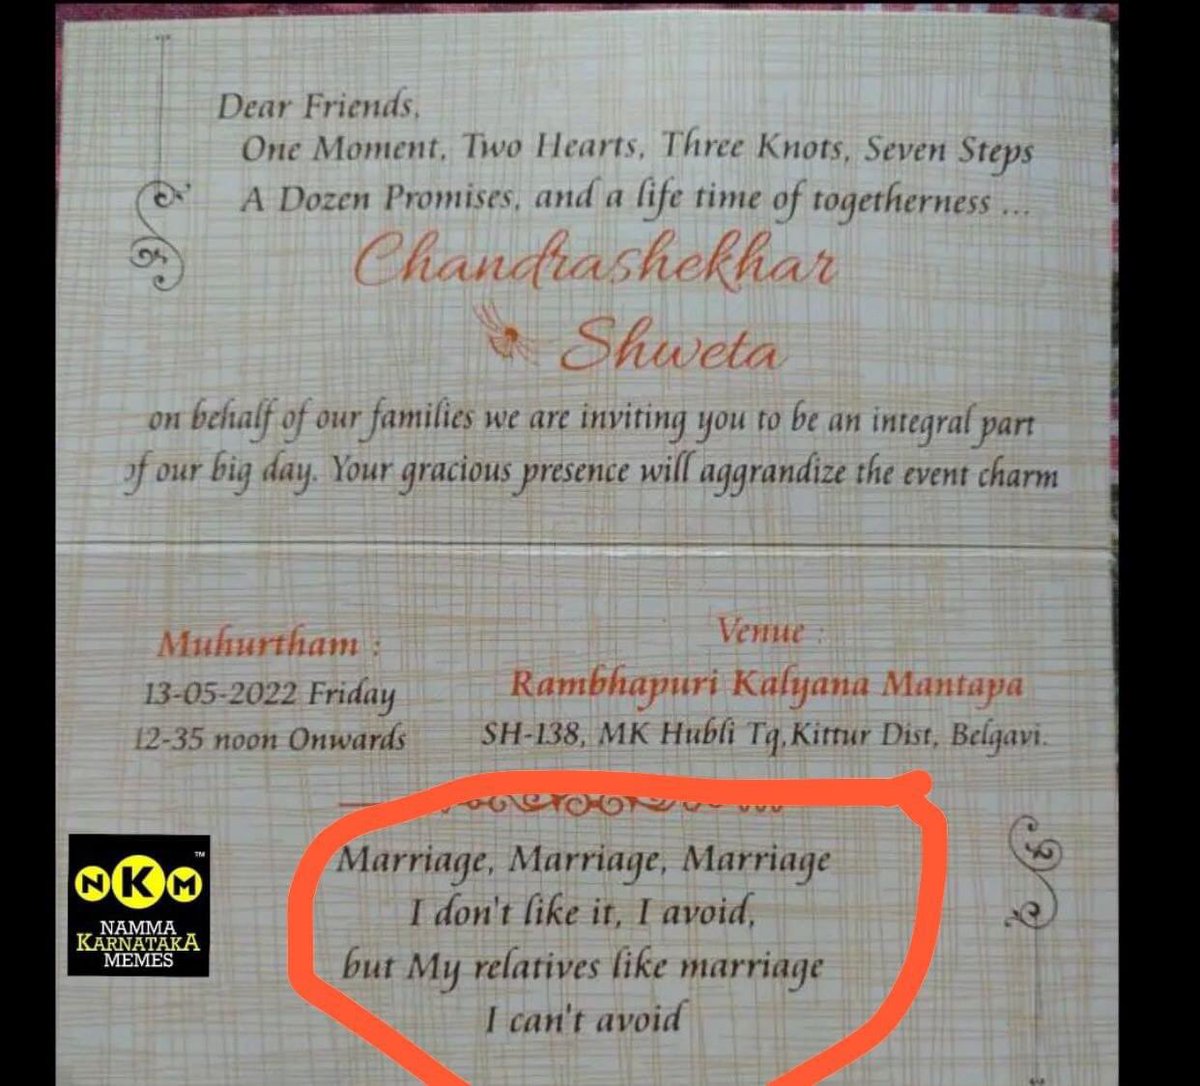 Dear Friends,
One Moment, Two Hearts, Three Knots, Seven Steps
A Dozen Promises, and a life time of togetherness ...
Chandrashekhar
Shweta
on behalf of our families we are inviting you to be an integral part
of our big day. Your gracious presence will aggrandize the event charm
Muhurtham :
13-05-2022 Friday
12-35 noon Onwards
Venue :
Rambhapuri Kalyana Mantapa
SH-138, MK Hubli Tq,Kittur Dist, Belgavi.
Marriage, Marriage, Marriage
I don't like it, I avoid,
but My relatives like marriage
I can't avoid
NKM ™
NAMMA
KARNATAKA
MEMES